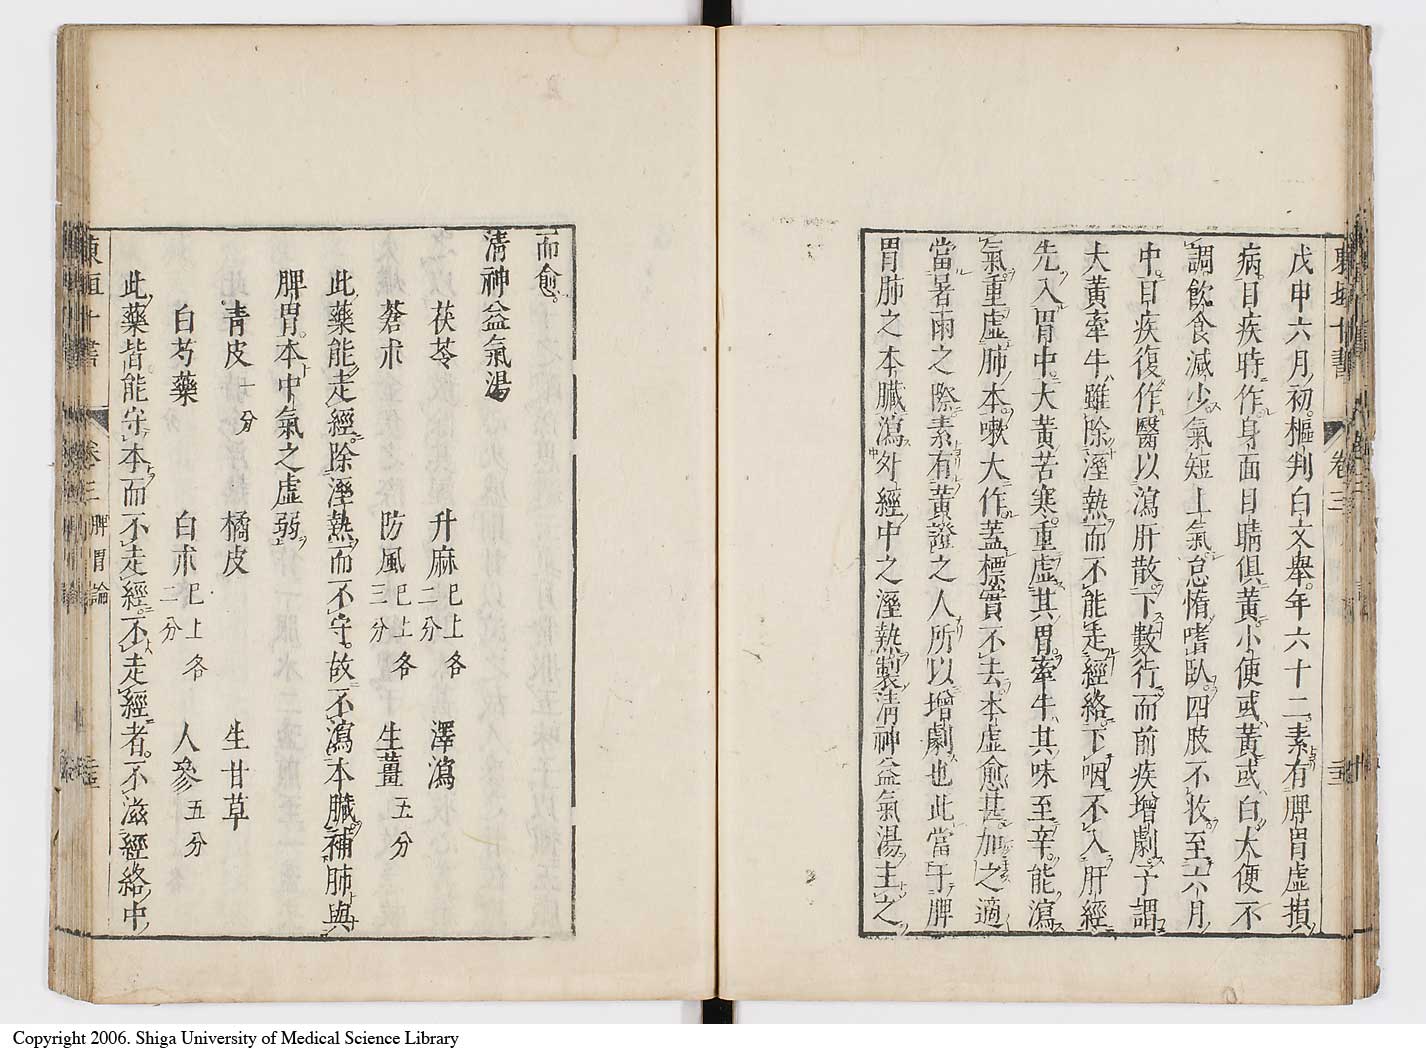 東垣十書 卷三
戊申六月初樞判白文舉年六十二素有脾胃虛損
病目疾時作身面目睛俱黃小便或黃或白大便不
調飲食減少氣短上氣怠惰嗜臥四肢不收至六月
中目疾復作醫以瀉肝散下數行而前疾增劇予謂
大黃牽牛雖除溼熱而不能走經絡下咽不入肝經
先入胃中大黃苦寒重虛其胃牽牛其味至辛能瀉
氣重虛肺本嗽大作蓋標實不去本虛愈甚加之適
當暑雨之際素有黃證之人所以增劇也此當于脾
胃肺之本臟瀉外經中之溼熱製清神益氣湯主之
而愈
清神益氣湯
茯苓 升麻已上各二分 澤瀉
蒼朮 防風已上各三分 生薑五分
此藥能走經除溼熱而不守故不瀉本臟補肺與
脾胃本中氣之虛弱
青皮一分 橘皮 生甘草
白芍藥 白朮已上各二分 人參五分
此藥皆能守本而不走經不走經者不滋經絡中
東垣十書 卷三 脾胃論
Copyright 2006. Shiga University of Medical Science Library